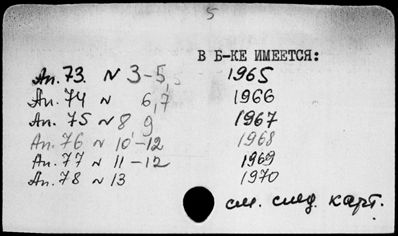 5
В Б-КЕ ИМЕЕТСЯ:
Ап. 73 N 3-5 1965
Ап. 74 N 6,7 1966
Ап. 75 N 8 9 1967
Ап. 76 N 10-12 1968
Ап. 77 N 11-12 1969
Ап. 78 N 13 1970
см. след. карт.